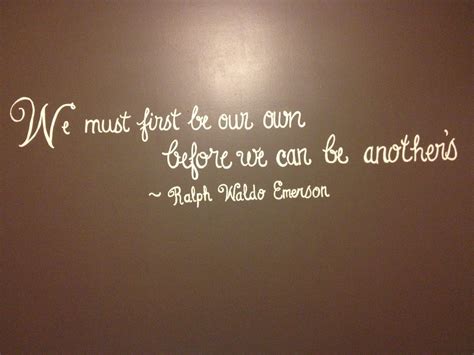 We must first be our own
before we can be another's
~ Ralph Waldo Emerson